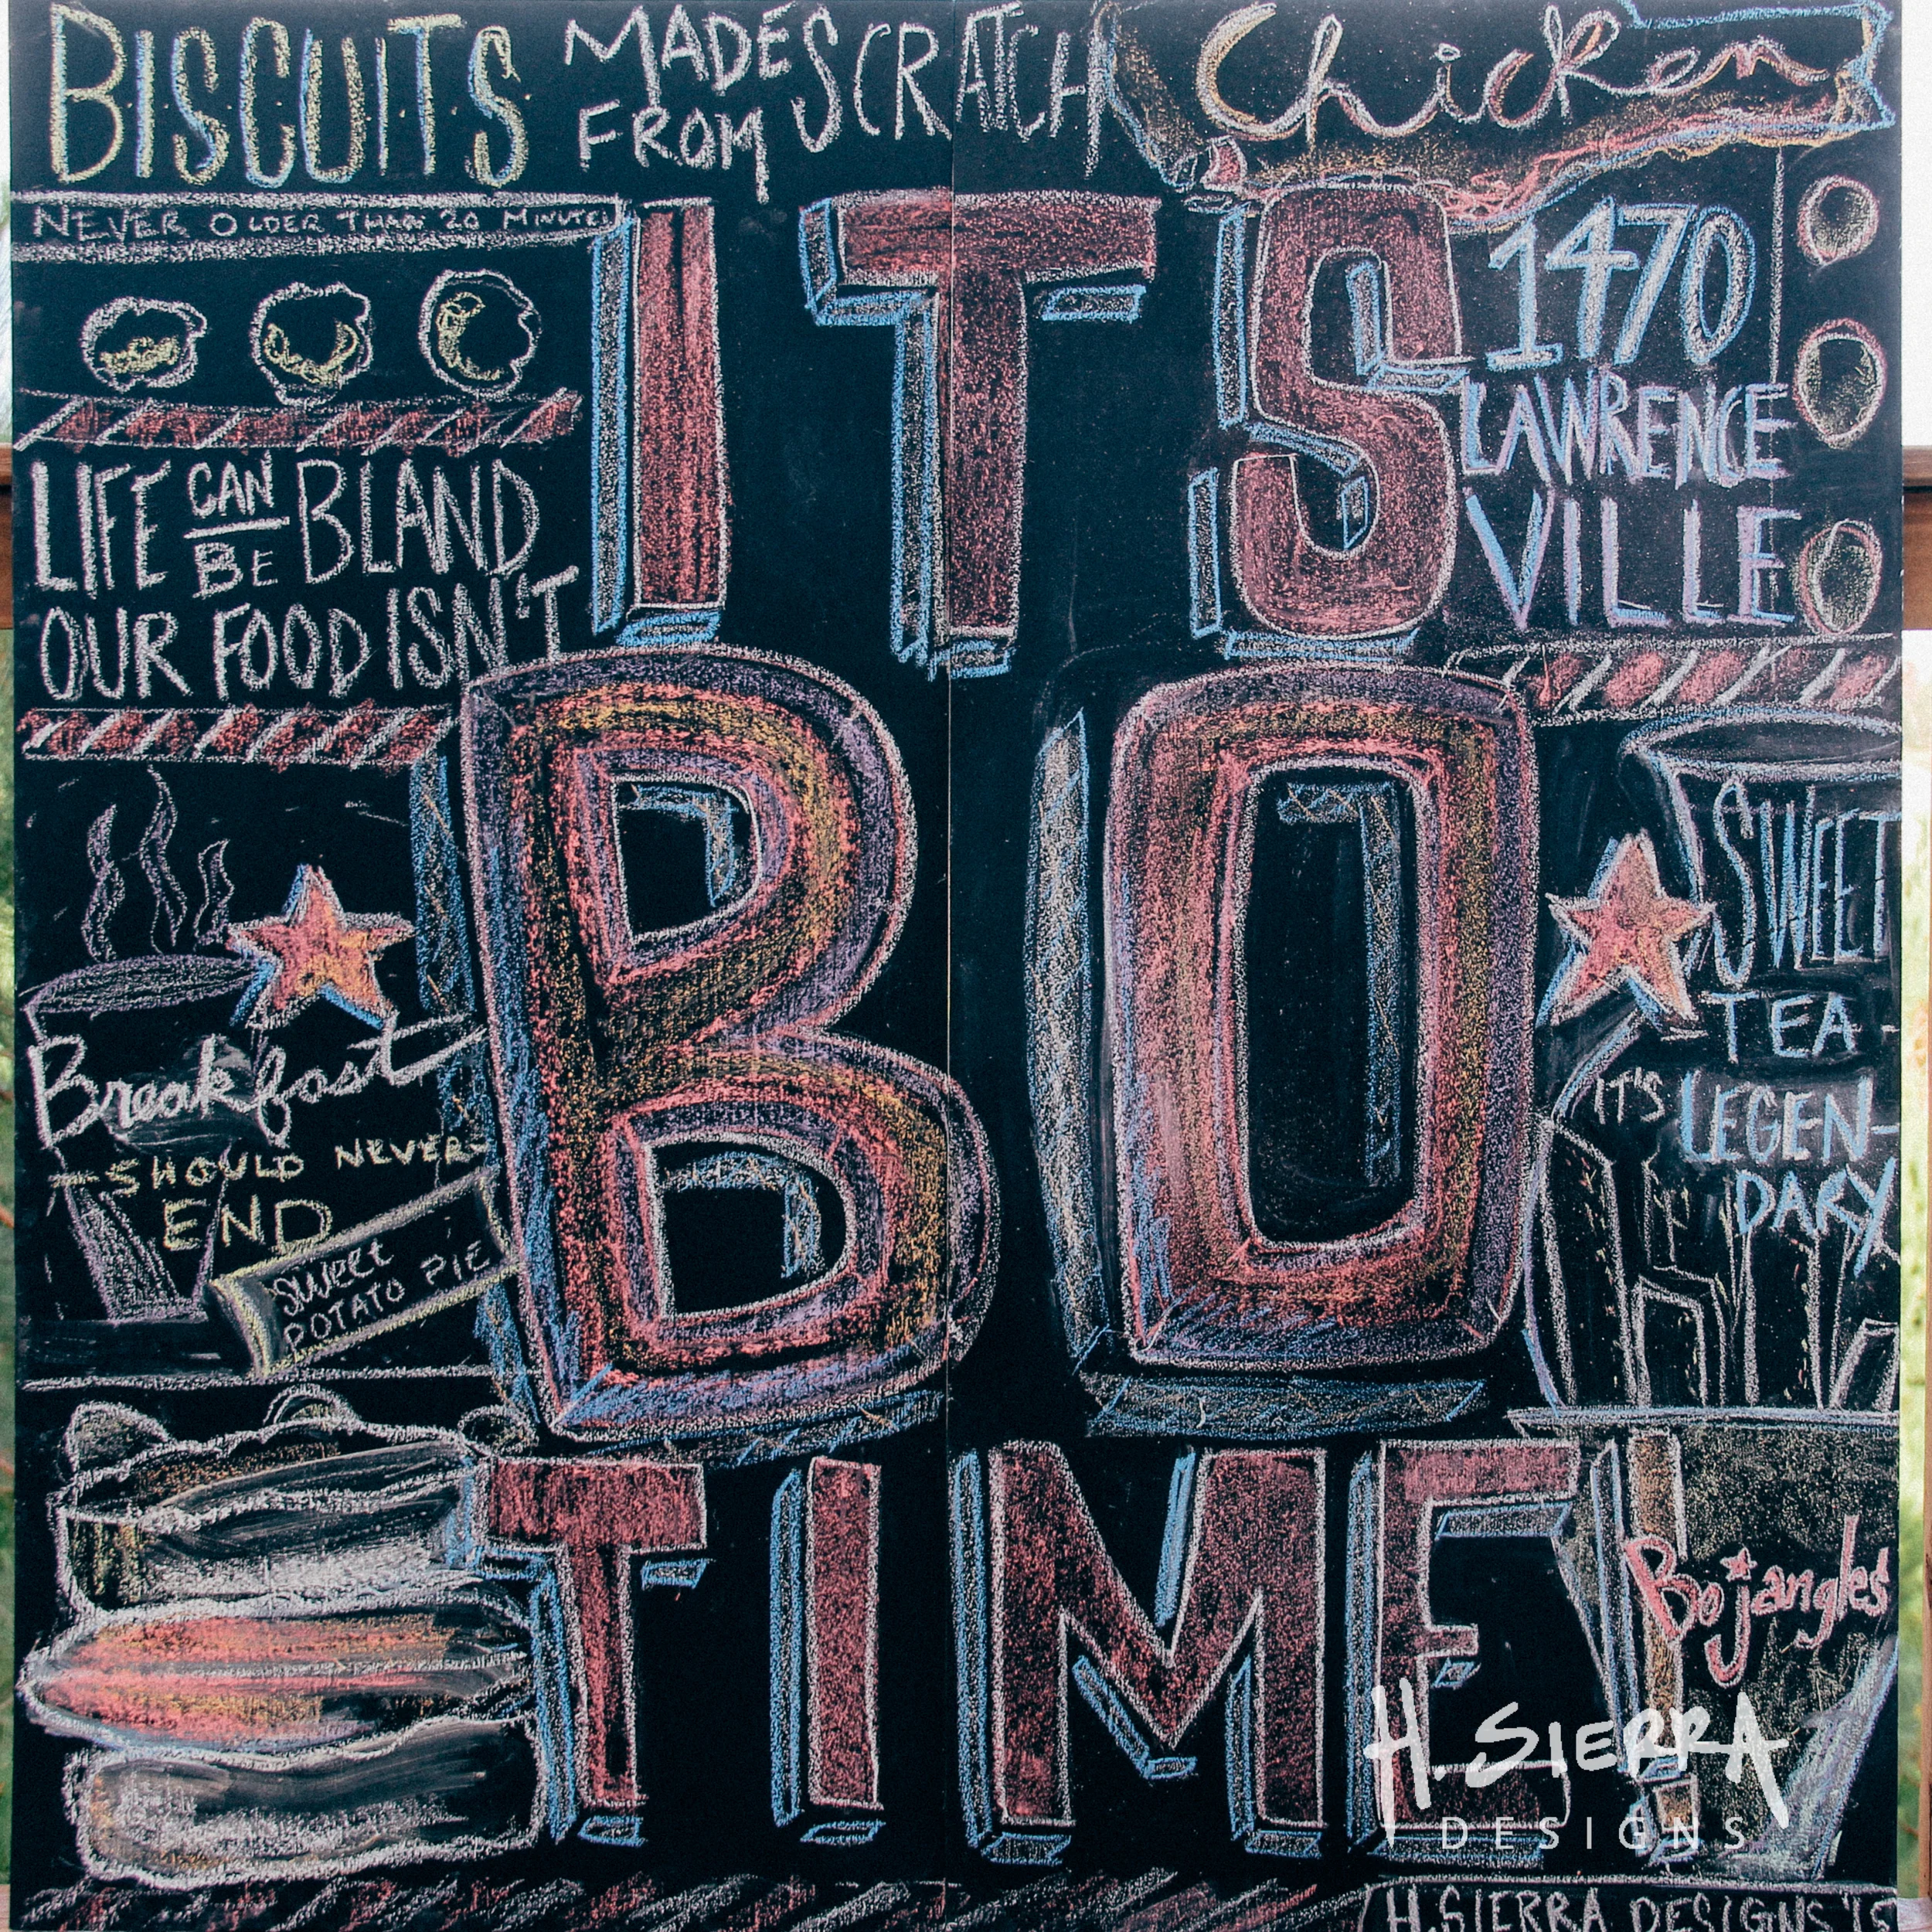 BISCUITS MADE FROM SCRATCH
Chicken
NEVER OLDER THAN 20 MINUTES
ITS
1470
LAWRENCE
VILLE
LIFE CAN BE BLAND
OUR FOOD ISN'T
BO
SWEET
TEA
IT'S LEGEN-
DARY
Breakfast
SHOULD NEVER
END
SWEET
POTATO PIE
TIME
Bojangles
H. SIERRA
DESIGNS
H. SIERRA DESIGNS '15